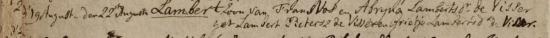 19 August. den 22 Augusti Lambert Zoon van Frans Vos en Adryna Lambertsdr. de Visser
get Lambert Pieterse de Visser en Grietje Lamberts de Visser.